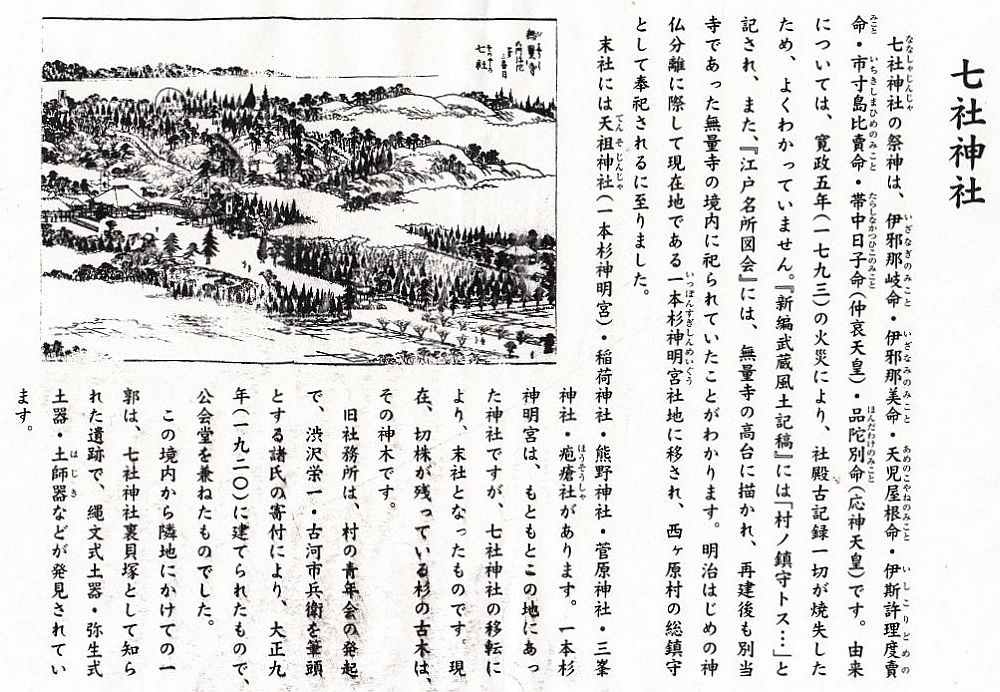 七社神社
七社神社の祭神は、伊邪那岐命・伊邪那美命・天児屋根命・伊斯許理度賣
命・市寸島比賣命・帯中日子命(仲哀天皇)・品陀別命(応神天皇)です。由来
については、寛政五年(一七九三)の火災により、社殿古記録一切が焼失した
ため、よくわかっていません。『新編武蔵風土記稿』には「村ノ鎮守トス…」と
記され、また、『江戸名所図会』には、無量寺の高台に描かれ、再建後も別当
寺であった無量寺の境内に祀られていたことがわかります。明治はじめの神
仏分離に際して現在地である一本杉神明宮社地に移され、西ヶ原村の総鎮守
として奉祀されるに至りました。
末社には天祖神社(一本杉神明宮)・稲荷神社・熊野神社・菅原神社・三峯
神社・疱瘡社があります。一本杉
神明宮は、もともとこの地にあっ
た神社ですが、七社神社の移転に
より、末社となったものです。現
在、切株が残っている杉の古木は、
その神木です。
旧社務所は、村の青年会の発起
で、渋沢栄一・古河市兵衛を筆頭
とする諸氏の寄付により、大正九
年(一九二〇)に建てられたもので、
公会堂を兼ねたものでした。
この境内から隣地にかけての一
郭は、七社神社裏貝塚として知ら
れた遺跡で、縄文式土器・弥生式
土器・土師器などが発見されてい
ます。
無量寺
七社